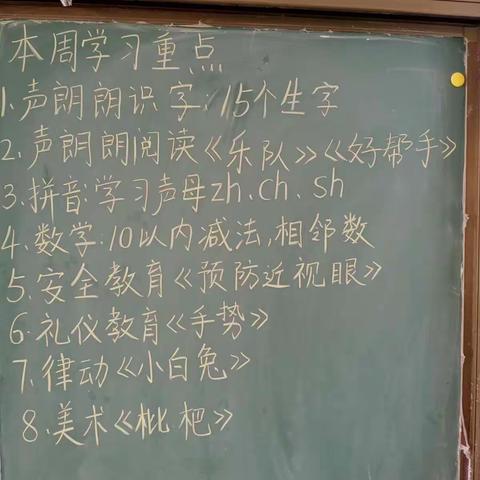 本周学习重点
1.声朗朗识字:15个生字
2.声朗朗阅读《乐队》《好帮手》
3.拼音:学习声母zh、ch、sh
4.数学:10以内减法,相邻数
5.安全教育《预防近视眼》
6.礼仪教育《手势》
7.律动《小白兔》
8.美术《枇杷》